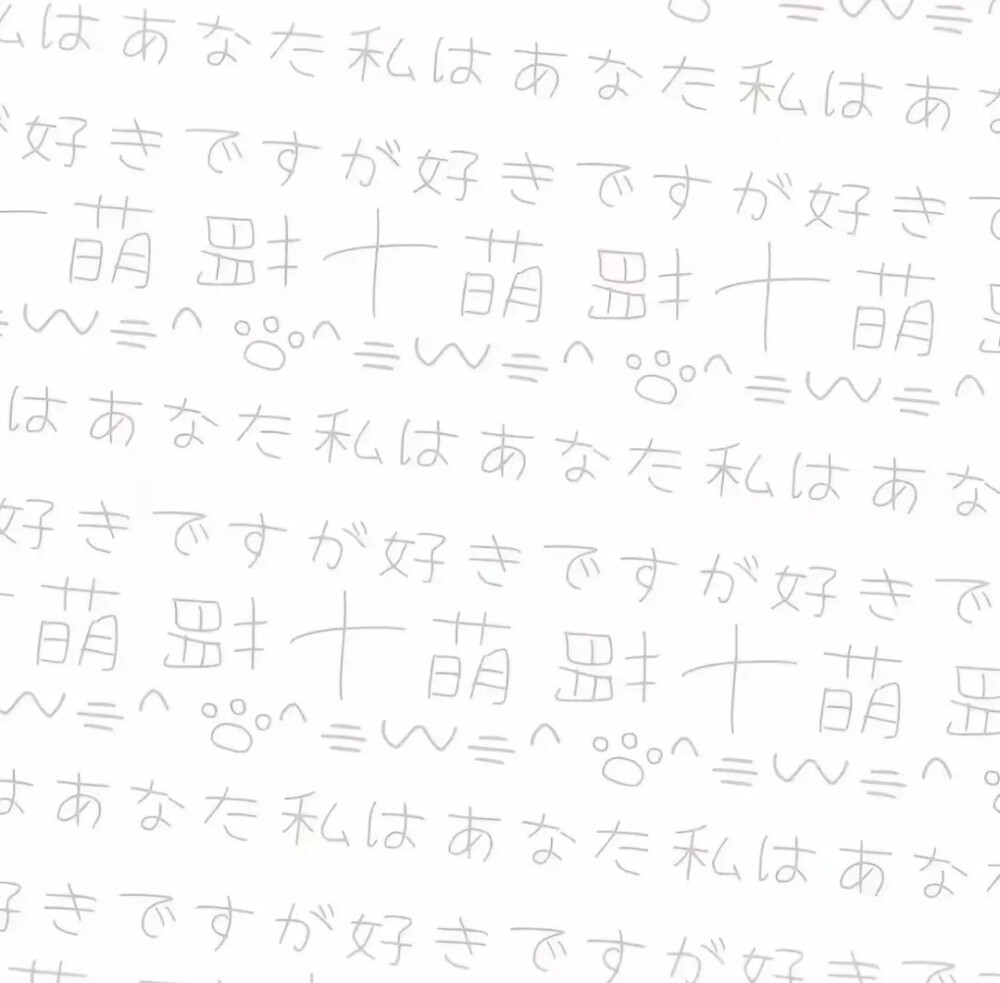 ≡w≡
はあなた私はあなた私はあ
好きですが好きですが好き
萌 十萌 十萌
w≡^ ^≡w≡^ ^≡w≡^
はあなた私はあなた私はあな
好きですが好きですが好きで
萌 十萌 十萌
w≡^ ^≡w≡^ ^≡w≡^
はあなた私はあなた私はあな
好きですが好きですが好きで